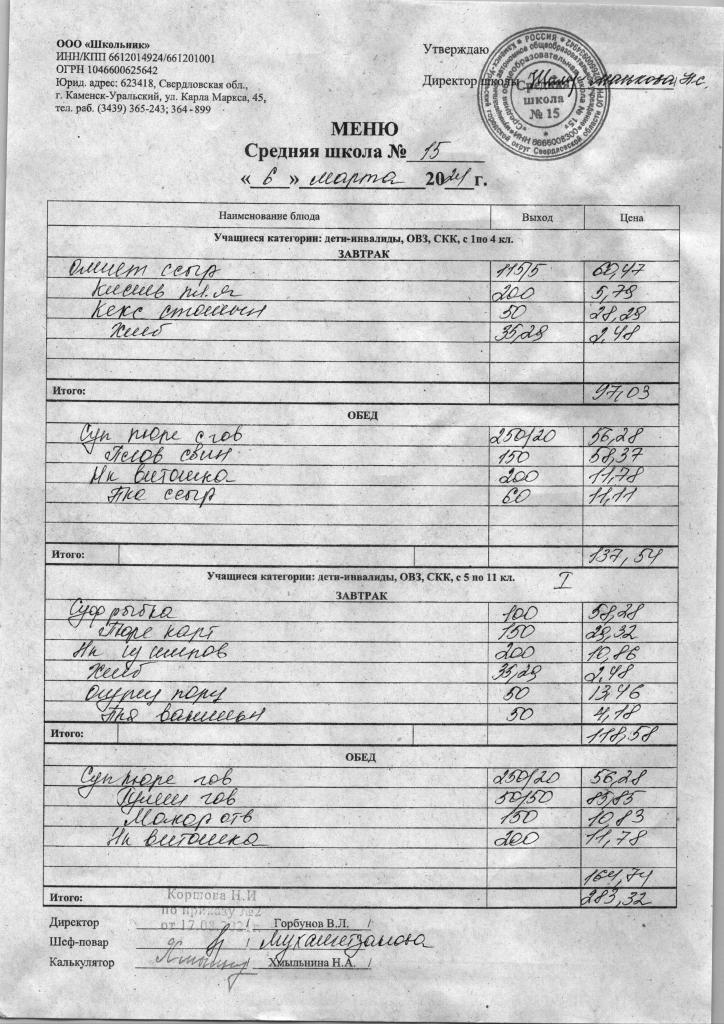 ООО «Школьник»
ИНН/КПП 6612014924/661201001
ОГРН 1046600625642
Юрид. адрес: 623418, Свердловская обл.,
г. Каменск-Уральский, ул. Карла Маркса, 45,
тел. раб. (3439) 365-243; 364 - 899
Утверждаю
Директор школы
школа
№ 15
МЕНЮ
Средняя школа № 15
« 6 » марта 2024 г.
Наименование блюда Выход Цена
Учащиеся категории: дети-инвалиды, ОВЗ, СКК, с 1по 4 кл.
ЗАВТРАК
Омлет ссыр 115/5 60,47
Кисель пл.я 200 5,79
Кекс столичн 50 28,29
Хлеб 35,29 2,48
Итого: 97,03
ОБЕД
Суп пюре с гов 250/20 56,28
Плов свин 150 58,37
Нк витошка 200 11,78
Пко ссыр 60 11,11
Итого: 137,54
Учащиеся категории: дети-инвалиды, ОВЗ, СКК, с 5 по 11 кл. I
ЗАВТРАК
Суф рыбка 100 58,28
Пюре карт 150 29,32
Нк 200 10,86
Хлеб 35,29 2,48
Огурец пору 50 13,46
Пкя ванильн 50 4,18
Итого: 118,58
ОБЕД
Суп пюре гов 250/20 56,28
Гуляш гов 50/50 85,85
Макар отв 150 10,83
Нк витошка 200 11,78
164,74
Итого: 283,32
Коршова Н.И
по приказу №2
от 17.08
Директор / Горбунов В.Л. /
Шеф-повар / Мухаметзанова
Калькулятор / Хмыльнина Н.А. /